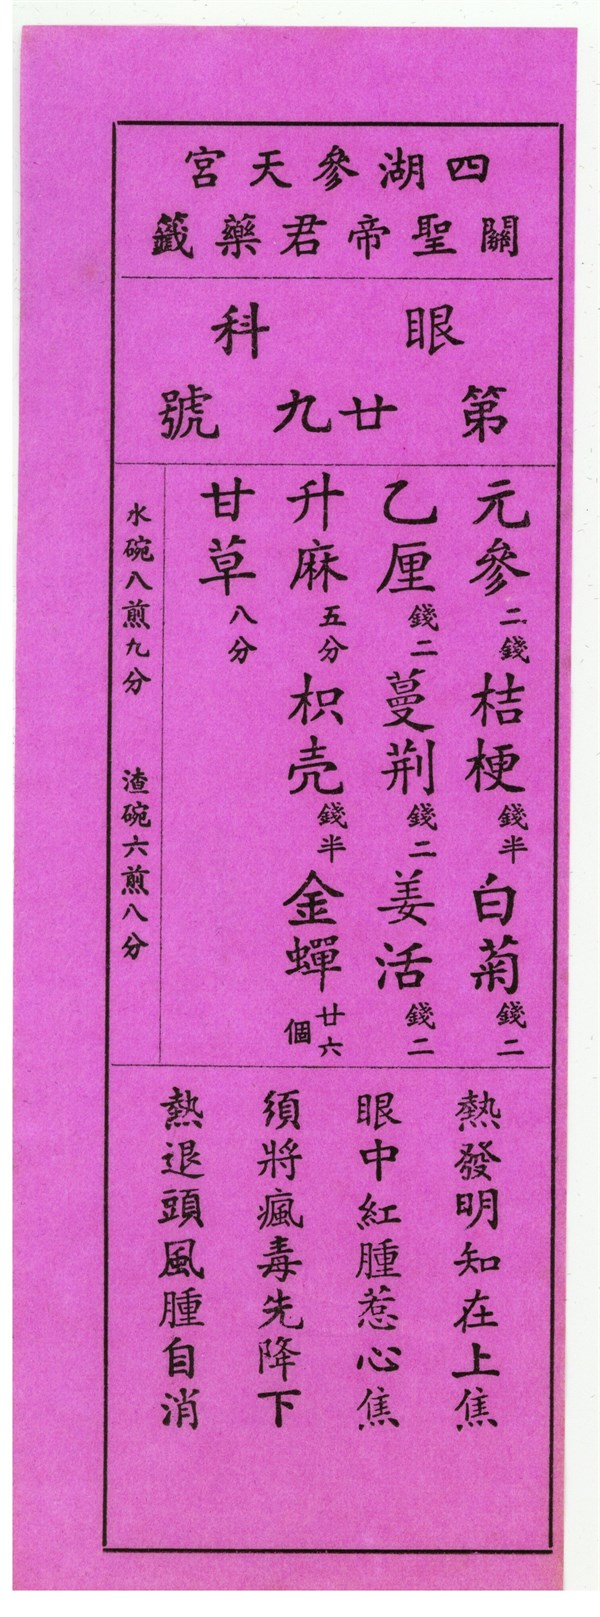 四湖參天宮
關聖帝君藥籤
眼科
第廿九號
元參二錢 桔梗錢半 白菊錢二
乙厘錢二 蔓荆錢二 姜活錢二
升麻五分 枳壳錢半 金蟬廿六個
甘草八分
水碗八煎九分 渣碗六煎八分
熱發明知在上焦
眼中紅腫惹心焦
須將瘋毒先降下
熱退頭風腫自消